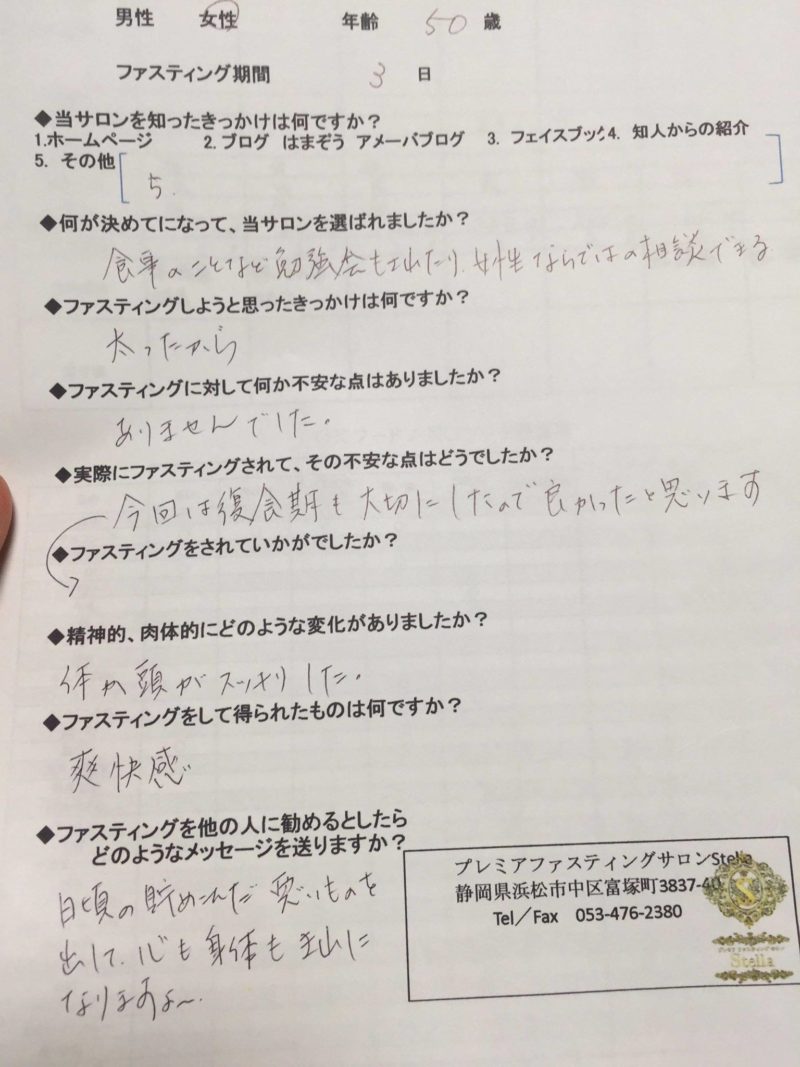 男性 女性 年齢 50 歳
ファスティング期間 3 日
◆当サロンを知ったきっかけは何ですか?
1.ホームページ 2.ブログ はまぞう アメーバブログ 3. フェイスブック4. 知人からの紹介
5. その他
5.
◆何が決めてになって、当サロンを選ばれましたか?
食事のことなど勉強会も出たり、女性ならではの相談できる
◆ファスティングしようと思ったきっかけは何ですか?
太ったから
◆ファスティングに対して何か不安な点はありましたか?
ありませんでした。
◆実際にファスティングされて、その不安な点はどうでしたか?
今回は復食期も大切にしたので良かったと思います
◆ファスティングをされていかがでしたか?
◆精神的、肉体的にどのような変化がありましたか?
体か頭がスッキリした。
◆ファスティングをして得られたものは何ですか?
爽快感
◆ファスティングを他の人に勧めるとしたら
どのようなメッセージを送りますか?
日頃の貯めこんだ悪いものを
出して、心も身体も
なりますよ〜。
プレミアファスティングサロンStella
静岡県浜松市中区富塚町3837-40
Tel/Fax 053-476-2380
プレミアファスティングサロン
Stella